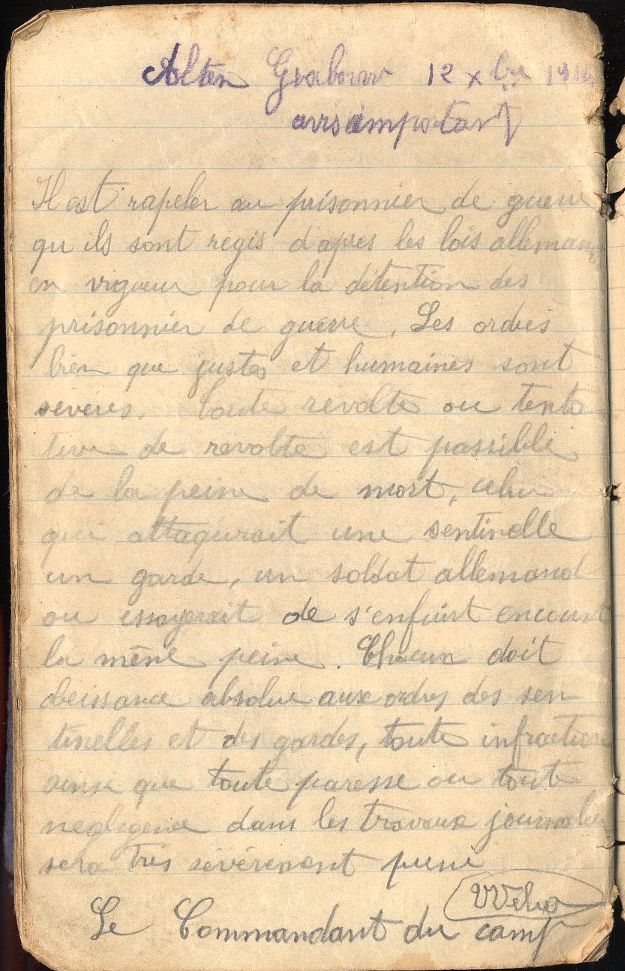 Alten Grabow 12 xbre 1914
avis important
Il est rapeler au prisonnier de guerre
qu ils sont regis d'apres les lois alleman
en vigueur pour la détention des
prisonnier de guerre. Les ordres
bien que justes et humaines sont
severes. Toute revolte ou tenta
tive de revolte est passible
de la peine de mort, celui
qui attaqurait une sentinelle
un garde, un soldat allemand
ou essayerait de s'enfuirt encourt
la même peine. Chacun doit
obeissance absolue aux ordres des sen
tinelles et des gardes, toute infraction
ainsi que toute paresse ou tout
negligence dans les travaux journalier
sera très sévèrement puni
Le Commandant du camp